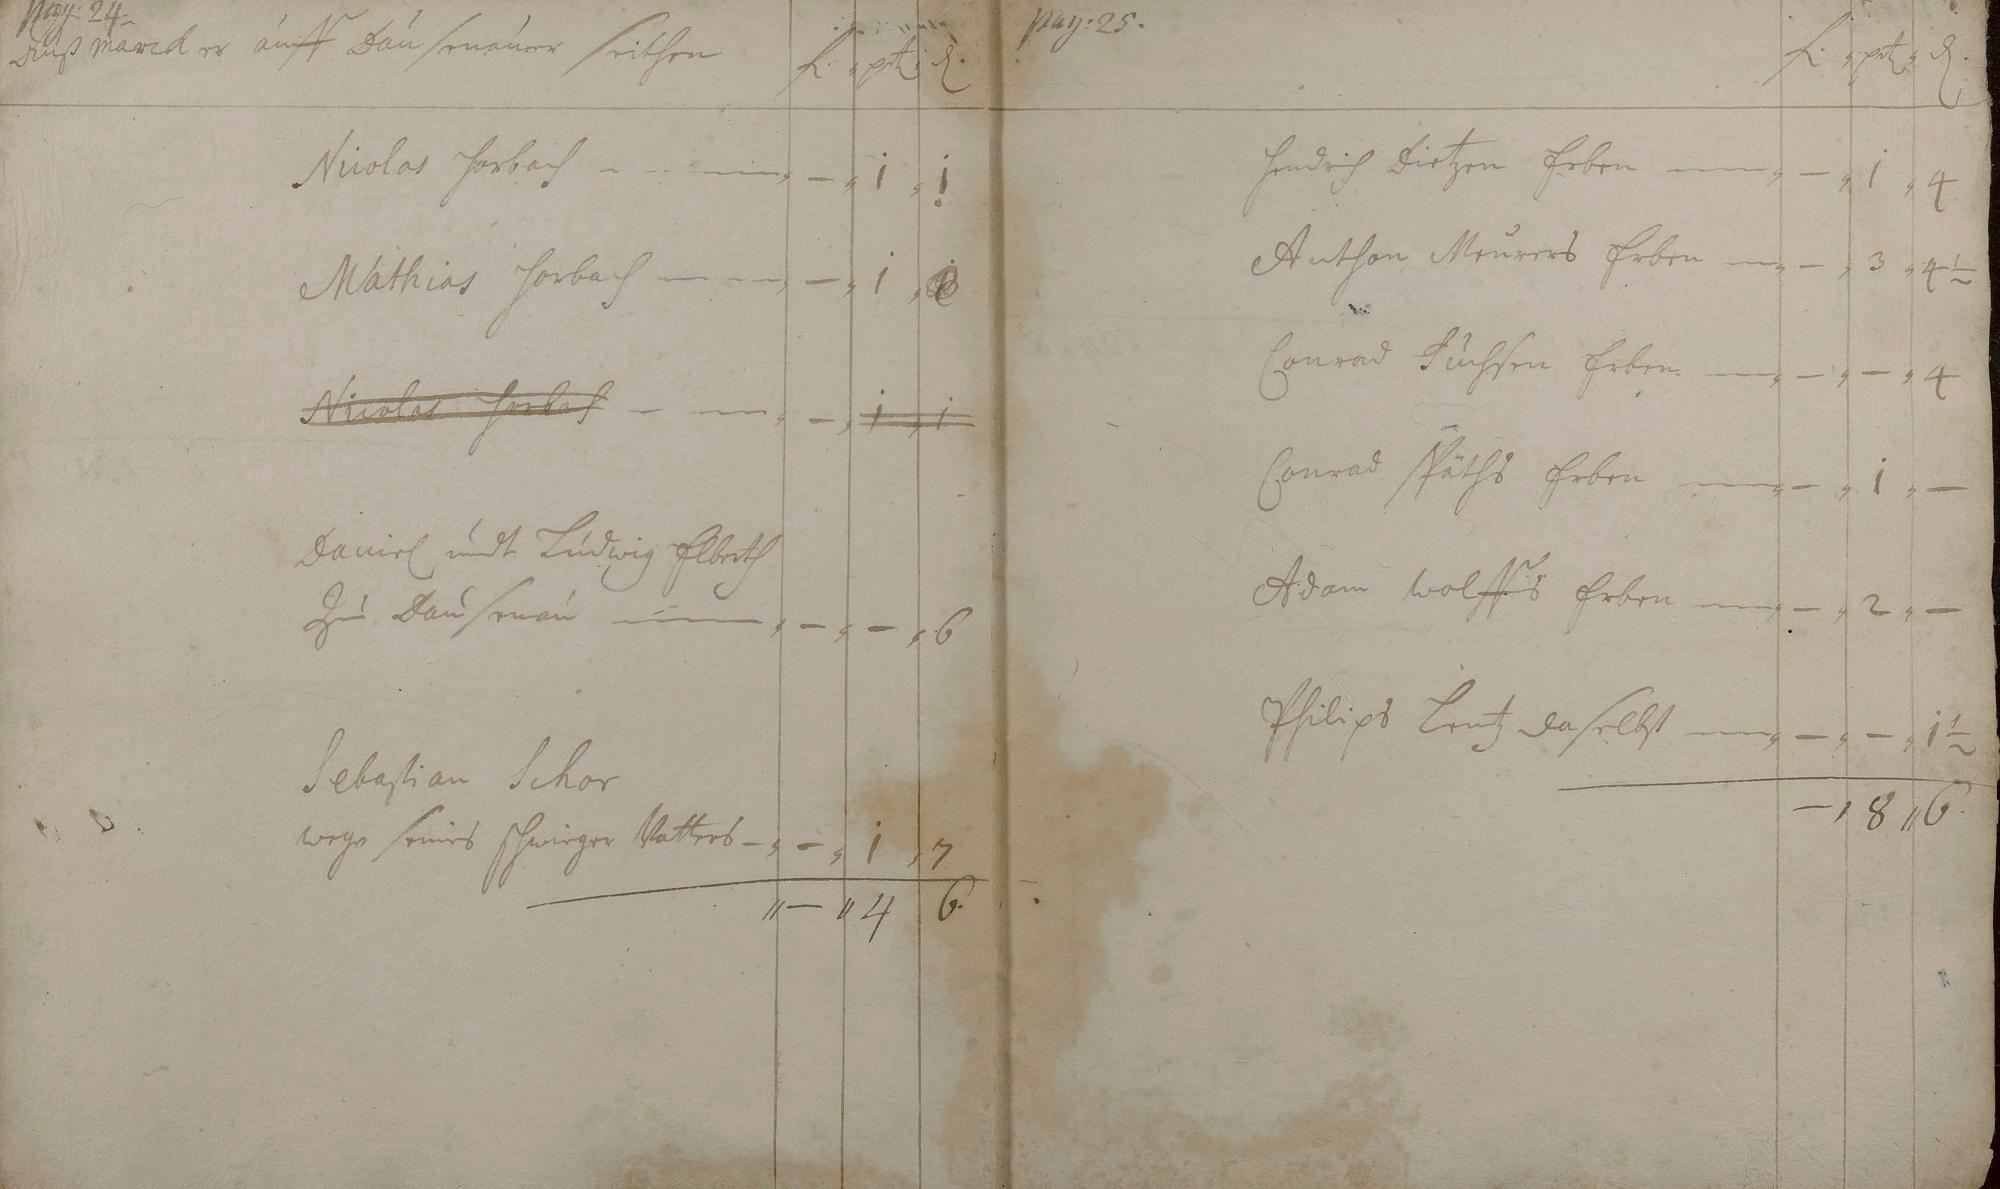 Pag: 24.
Außmarcker auff Dausenauer seithen fl. ptz d.
Nicolas Horbach — „ — „ 1 „ 1
Mathias Horbach — „ — „ 1 „
Nicolas Horbach — „ — „ 1 „ 1
Daniel undt Ludwig Elberth
Zu Dausenau — „ — „ — „ 6
Sebastian Schor
wege seines schwieger Vatters — „ — „ 1 „ 7
„ — „ 4 6.
Pag: 25.
fl. „ ptz „ d.
Hendrich Dietzen Erben — „ — „ 1 „ 4
Anthon Meurers Erben — „ — „ 3 „ 4 1/2
Conrad Fuchsen Erben — „ — „ — „ 4
Conrad Späths Erben — „ — „ 1 „ —
Adam Wolffs Erben — „ — „ 2 „ —
Philips Lentz daselbst — „ — „ — „ 1 1/2
— „ 8 „ 6.